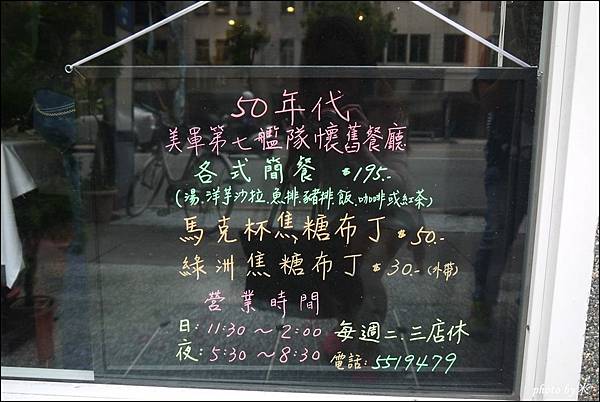 50年代
美軍第七艦隊懷舊餐廳
各式簡餐 $195.-
(湯.洋芋沙拉.魚排.豬排.飯.咖啡或紅茶)
馬克杯焦糖布丁 $50.-
綠洲焦糖布丁 $30.-(外帶)
營業時間
日:11:30～2:00 每週二.三店休
夜:5:30～8:30 電話:5519479
photo by K